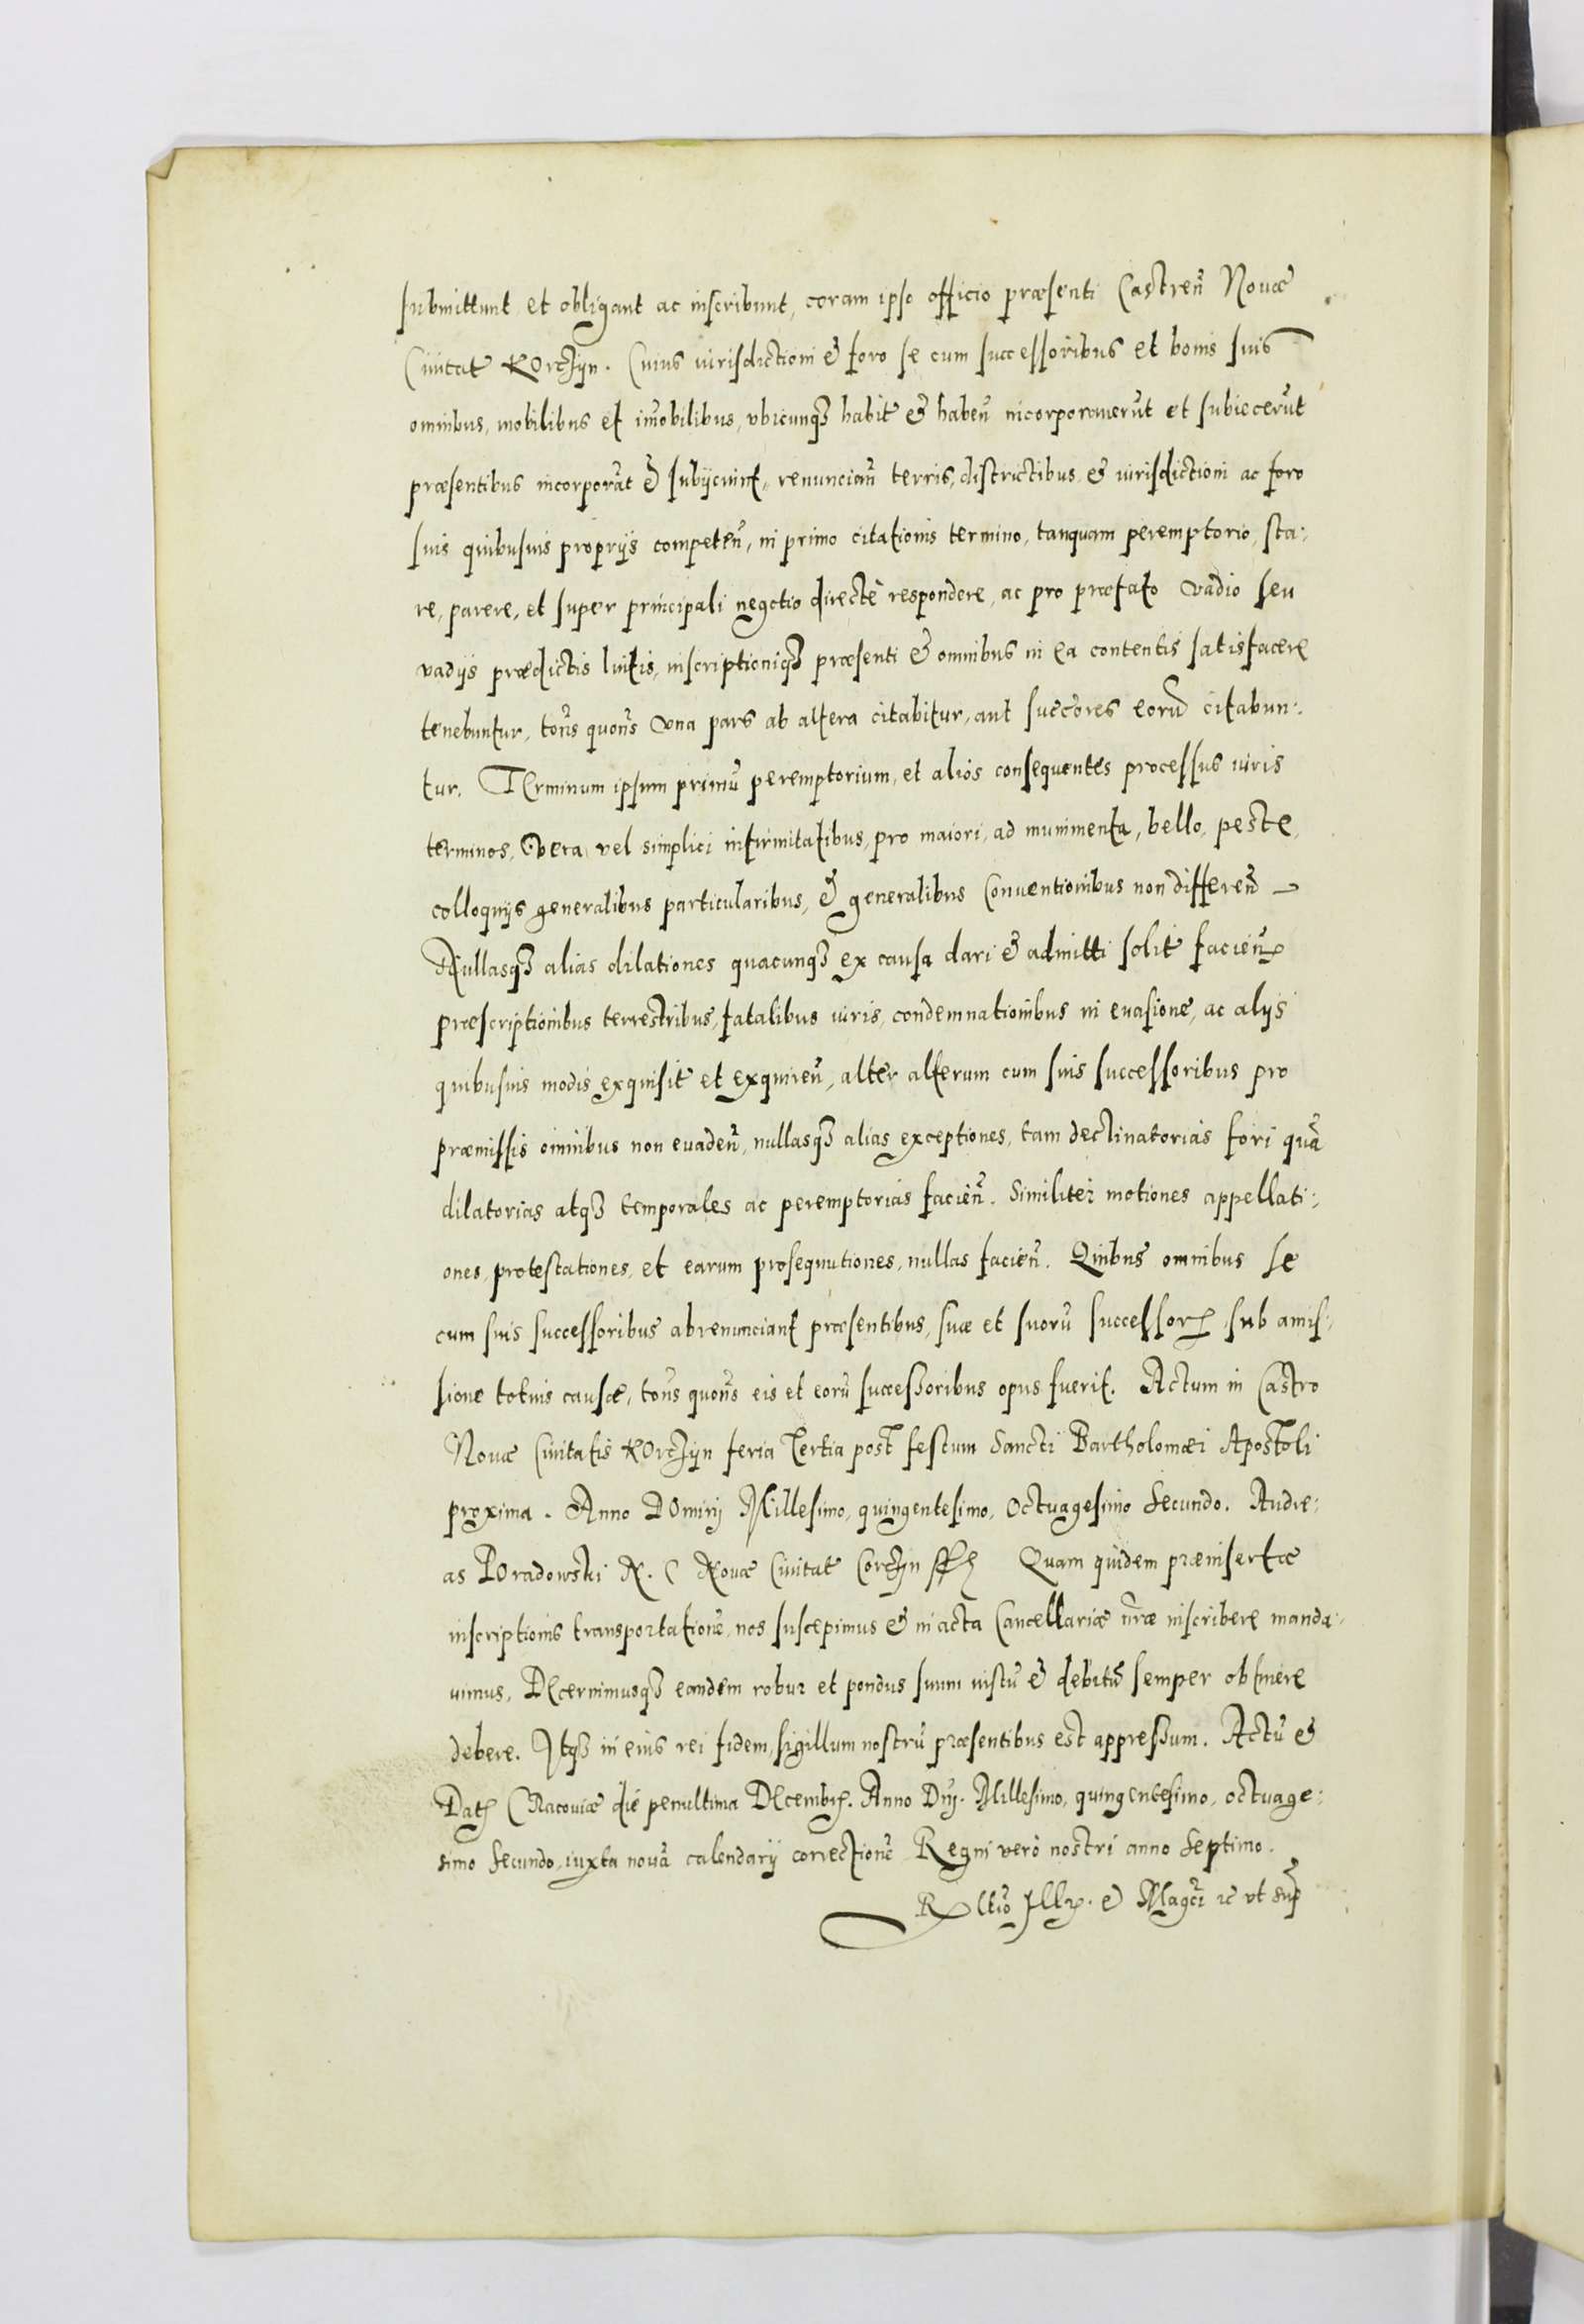 submittunt et obligant ac inscribunt, coram ipso officio præsenti Castren̄ Nouæ
Ciuitat̃ KOrcżyn. Cuius iurisdictioni & foro se cum successoribus et bonis suis
omnibus, mobilibus et im̄obilibus, vbicunqȝ habit̃ & haben̄ incorporauerūt et subiecerūt
præsentibus incorporāt & subijciunt, renuncian̄ terris, districtibus & iurisdictioni ac foro
suis quibusuis proprijs competen̄, in primo citationis termino, tanquam peremptorio, sta:
re, parere, et super principali negotio directè respondere, ac pro præfato vadio seu
vadijs prædictis luitis, inscriptioniqȝ præsenti & omnibus in ea contentis satisfacere
tenebuntur, totiēs quotiēs vna pars ab altera citabitur, aut succ̄ores eorū citabun:
tur. TErminum ipsum primū peremptorium, et alios consequentes processus iuris
terminos, Vera vel simplici infirmitatibus, pro maiori, ad munimenta, bello, peste,
colloquijs generalibus particularibus, & generalibus Conuentionibus non differen̄
Nullasqȝ alias dilationes quacunqȝ ex causa dari & admitti solit̃ facien̄
præscriptionibus terrestribus, fatalibus iuris, condemnationibus in euasione, ac alijs
quibusuis modis exquisit̃ et exquiren̄, alter alterum cum suis successoribus pro
præmissis omnibus non euaden̄, nullasqȝ alias exceptiones, tam declinatorias fori quā
dilatorias atqȝ temporales ac peremptorias facien̄. Similiter motiones appellati:
ones, protestationes, et earum prosequutiones, nullas facien̄. Quibus omnibus se
cum suis successoribus abrenunciant præsentibus, suæ et suorū successorꝝ sub amis:
sione totius causæ, totiēs quotiēs eis et eorū successoribus opus fuerit. Actum in Castro
Nouæ Ciuitatis KOrcżyn feria tertia post festum Sancti Bartholomæi Apostoli
proxima. Anno DOmini Millesimo, quingentesimo, Octuagesimo Secundo. Andre:
as BOradowski N. C Nouæ Ciuitat̃ Corcżyn Quam quidem præinsertæ
inscriptionis transportationē, nos suscepimus & in acta Cancellariæ nr̄æ inscribere manda:
uimus, DEcernimusqȝ eandem robur et pondus suum iustū & debitū semper obtinere
debere. Inqȝ eius rei fidem, sigillum nostrū præsentibus est appressum. Actū &
Datꝫ CRacouiæ die penultima DEcembrꝭ. Anno Dn̄j. Millesimo, quingentesimo, octuage:
simo Secundo, iuxta nouā calendarij correctionē Regni verò nostri anno Septimo.
R̄ltio Illꝭ. & Magc̄i ꝛc vt sup̄